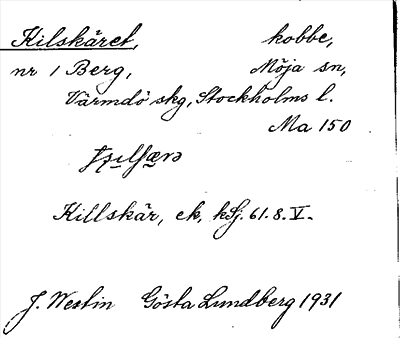 Kilskäret, kobbe,
nr 1 Berg, Möja sn,
Värmdö skg, Stockholms l.
Ma 150
Killskär, ek, kSj. 61.8.V.
J. Westin Gösta Lundberg 1931